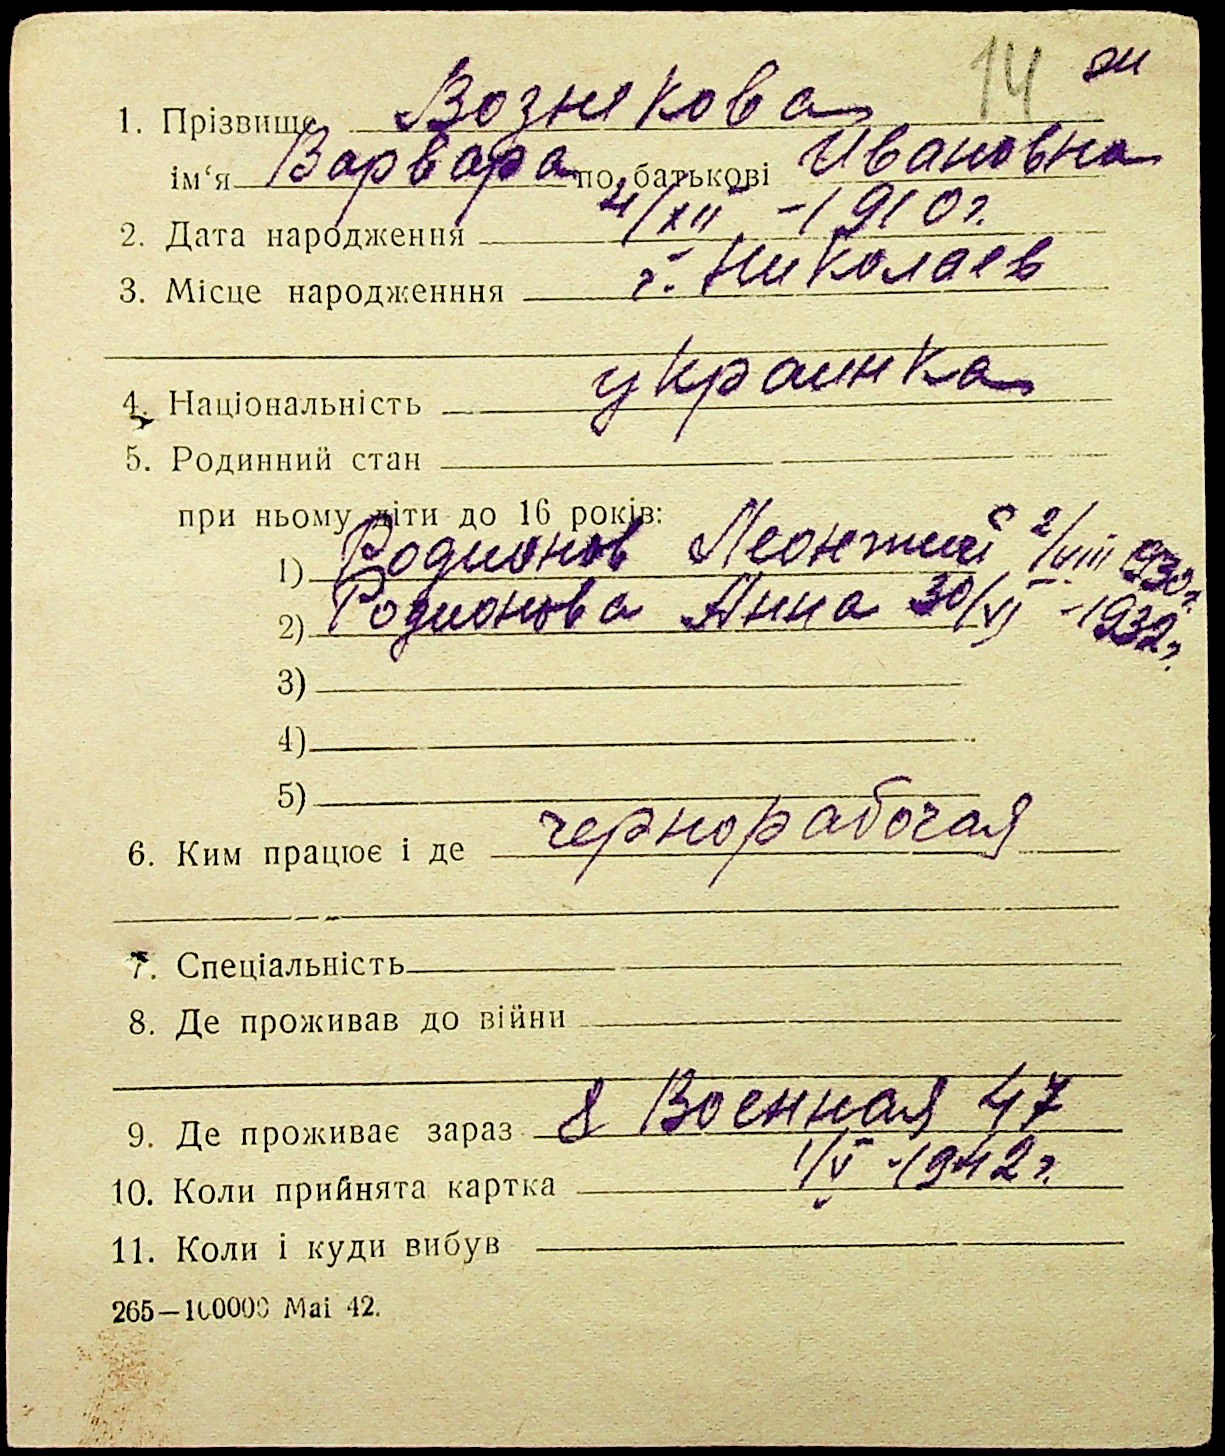 14 ж
1. Прізвище Вознякова
ім‘я Варвара по батькові Ивановна
2. Дата народження 4/XII -1910г.
3. Місце народженння г. Николаев
4. Національність украинка
5. Родинний стан
при ньому діти до 16 років:
1) Родионов Леонтий 2/VIII 930г.
2) Родионова Анна 30/VI -1932г.
3)
4)
5)
6. Ким працює і де чернорабочая
7. Спеціальність
8. Де проживав до війни
9. Де проживає зараз 8 Военная 47
10. Коли прийнята картка 1/V -1942г.
11. Коли і куди вибув
265—100000 Mai 42.